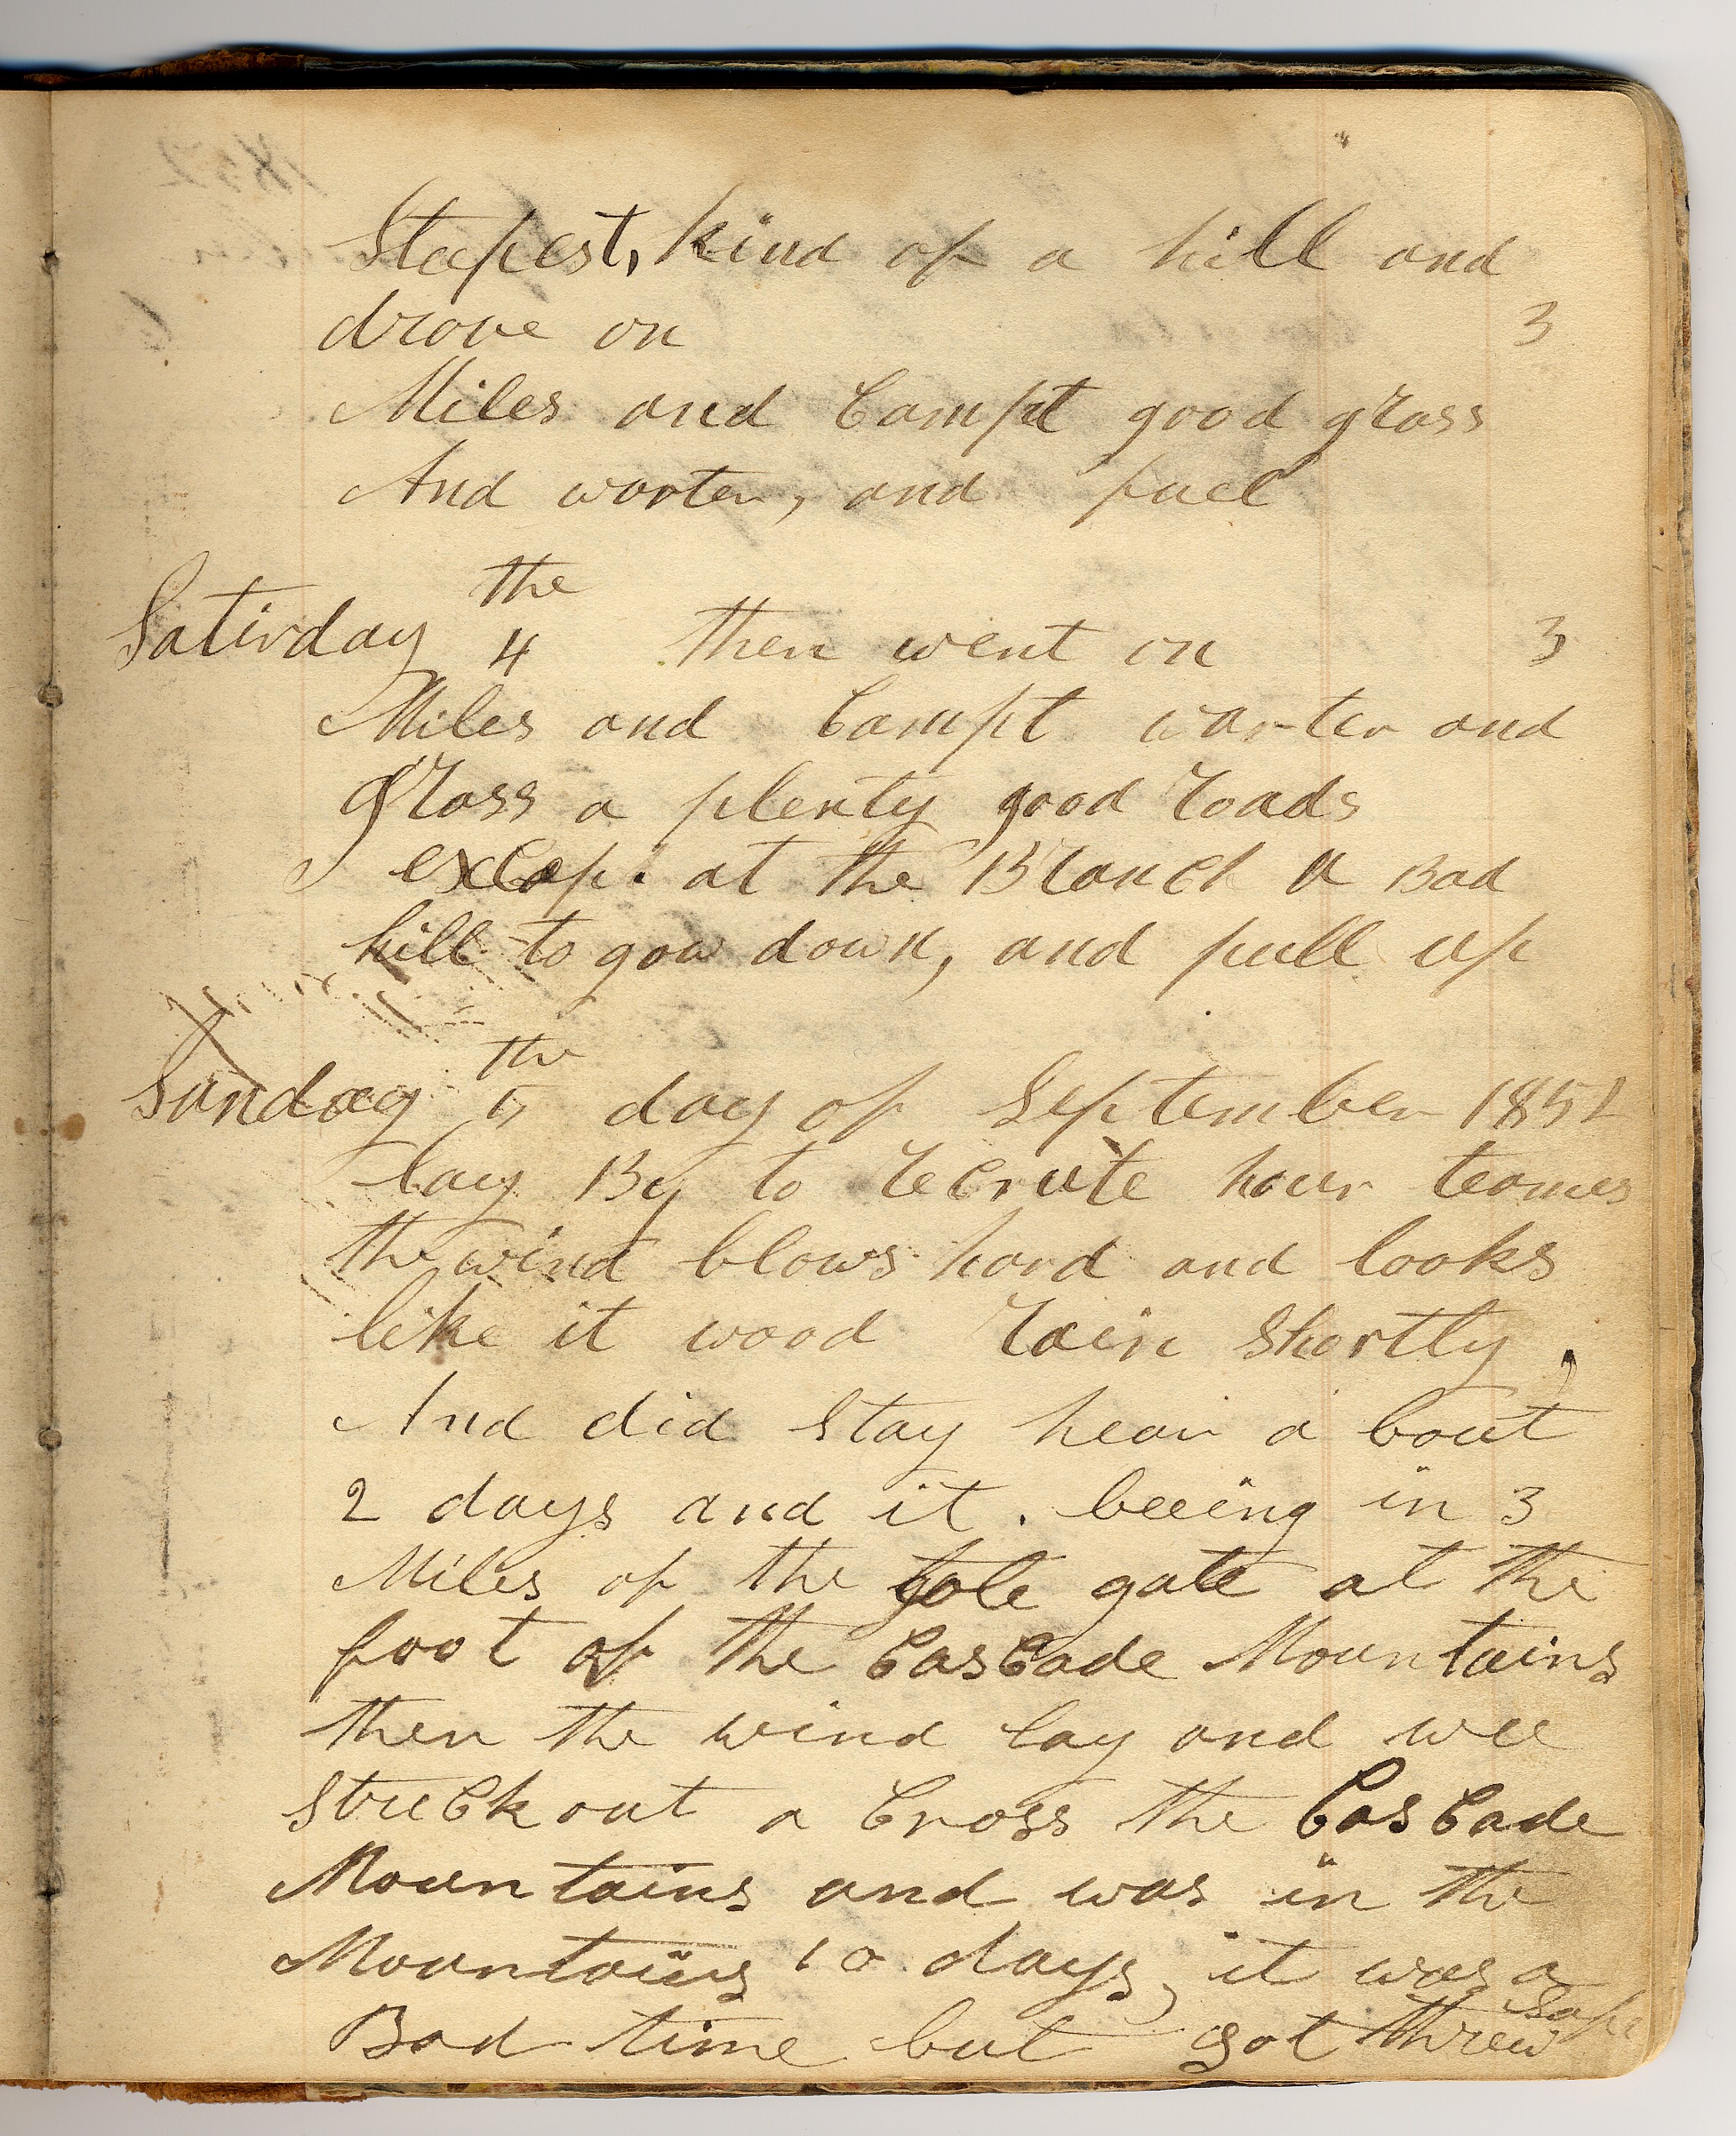 Steepest, kind of a hill and
drove on 3
Miles and Campt good grass
And warter, and fuel
the
Satirday 4 then went on 3
Miles and Campt warter and
grass a plenty good roads
excep. at the Branch a Bad
hill to gow down, and pull up
the
Sunday 5 day of September 1852
lay By to recrute hour teames
the wind blows hard and looks
like it wood rain shortly,
And did stay hear a bout
2 days and it. beeing in 3
Miles of the tole gate at the
foot of the CasCade Mountains
then the wind lay and wee
struCk out a Cross the CasCade
Mountains and was in the
Mountains 10 days, it was a
Bad time but got threw safe